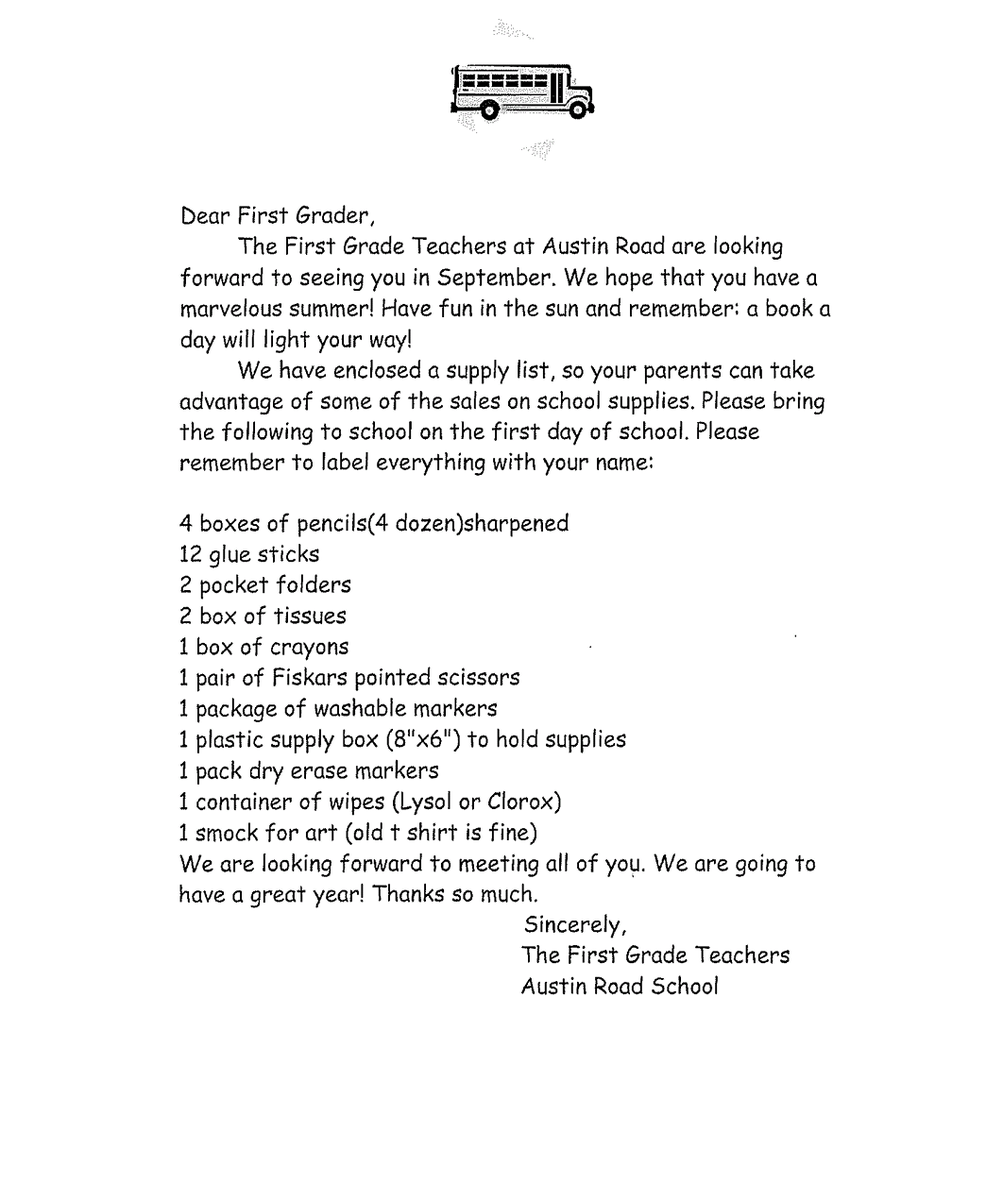 Dear First Grader,
The First Grade Teachers at Austin Road are looking
forward to seeing you in September. We hope that you have a
marvelous summer! Have fun in the sun and remember: a book a
day will light your way!
We have enclosed a supply list, so your parents can take
advantage of some of the sales on school supplies. Please bring
the following to school on the first day of school. Please
remember to label everything with your name:
4 boxes of pencils(4 dozen)sharpened
12 glue sticks
2 pocket folders
2 box of tissues
1 box of crayons
1 pair of Fiskars pointed scissors
1 package of washable markers
1 plastic supply box (8"x6") to hold supplies
1 pack dry erase markers
1 container of wipes (Lysol or Clorox)
1 smock for art (old t shirt is fine)
We are looking forward to meeting all of you. We are going to
have a great year! Thanks so much.
Sincerely,
The First Grade Teachers
Austin Road School